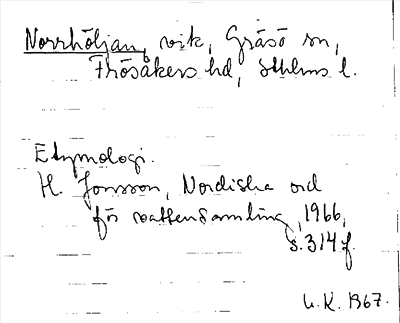 Norrhöljan, vik, Gräsö sn,
Frösåkers hd, Sthlms l.
Etymologi.
H. Jonsson, Nordiska ord
för vattensamling, 1966,
s. 314 f.
U.K. 1967.